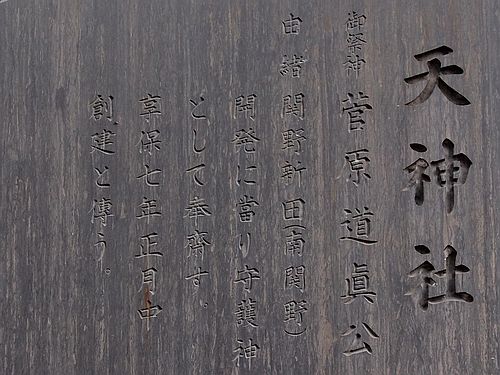 天神社
御祭神 菅原道眞公
由緒 関野新田(南関野)
開発に當り守護神
として奉齋す。
享保七年正月中
創建と傳う。